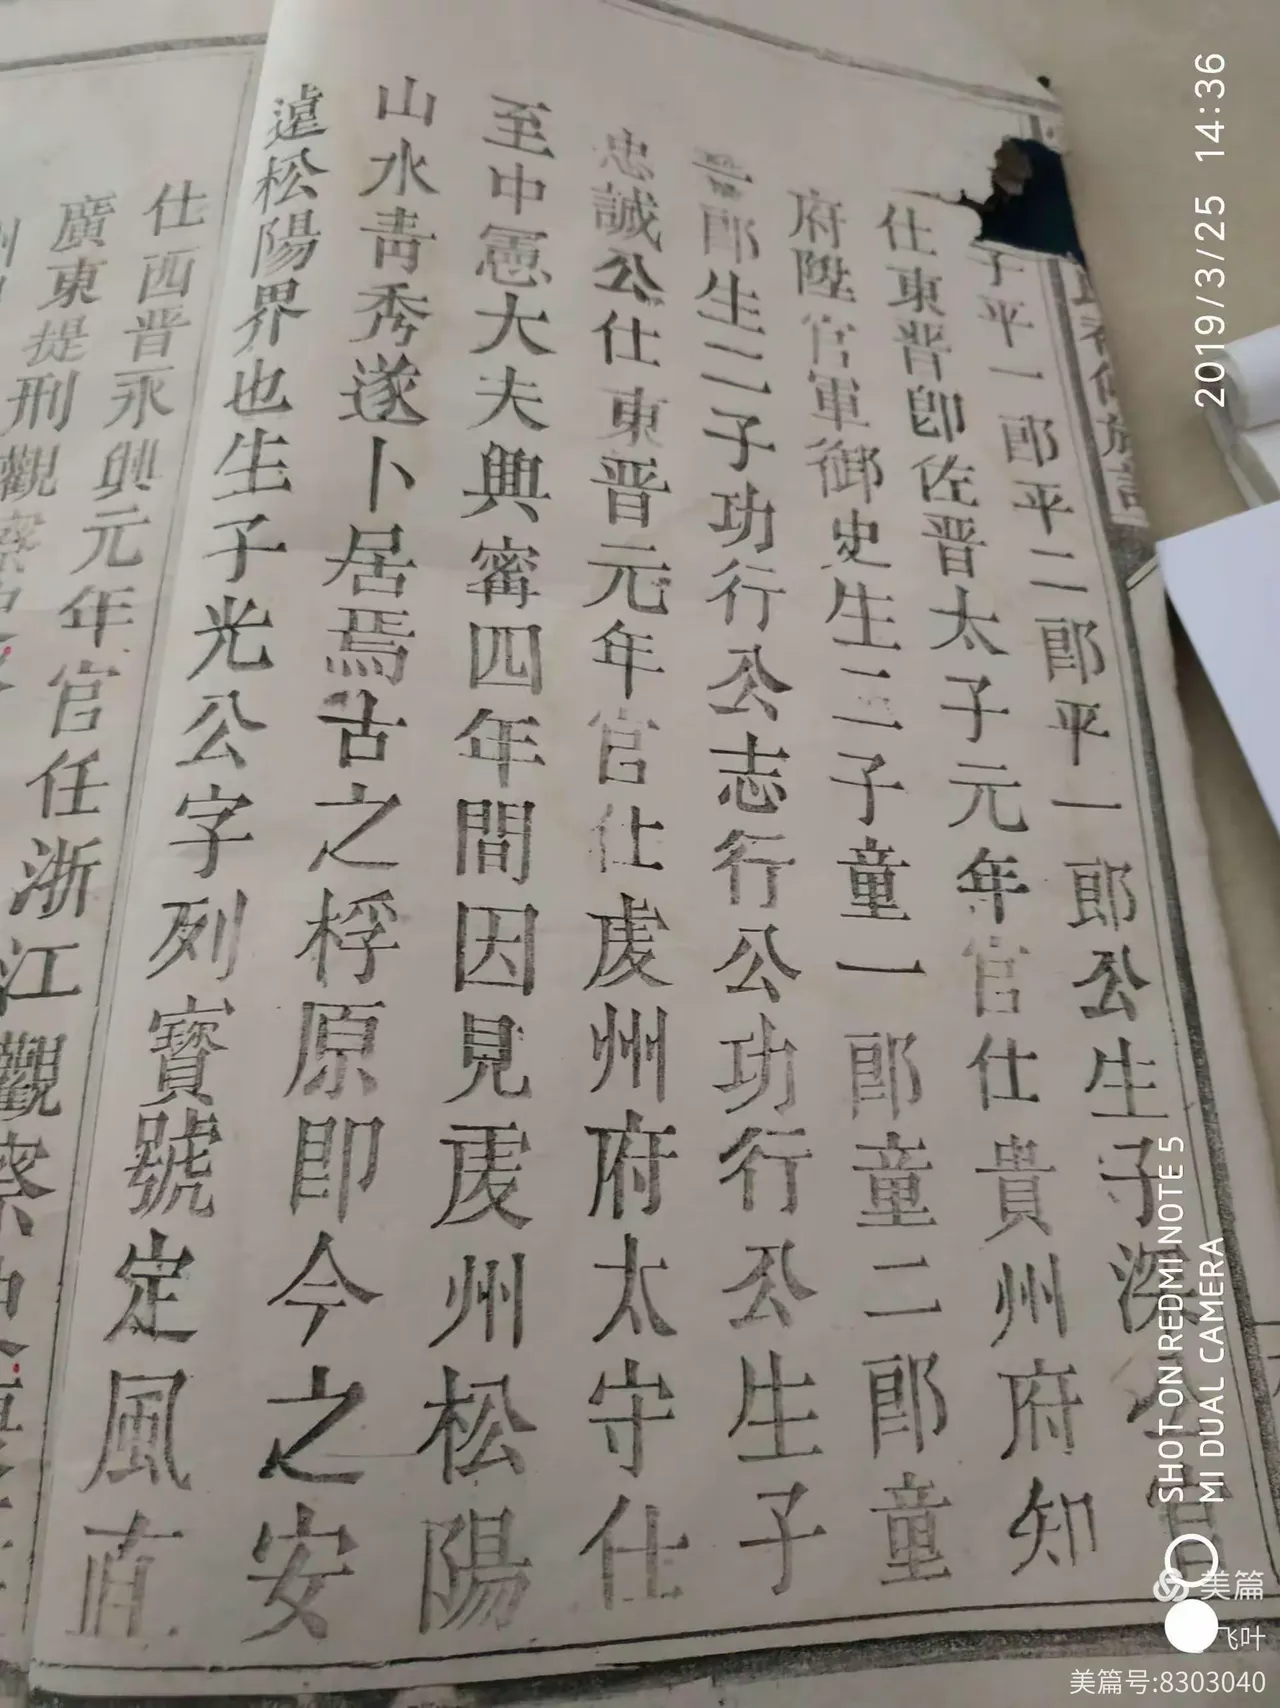 子平一郎平二郎平一郎公生子深
仕東晋卽佐晋太子元年官仕貴州府知
府陞官軍御史生三子童一郎童二郎童
三郎生二子功行公志行公功行公生子
忠誠公仕東晋元年官仕處州府太守仕
至中憲大夫興寗四年間因見處州松陽
山水青秀遂卜居焉古之桴原即今之安
遠松陽界也生子光公字列寳號定風直
仕西晋永興元年官任浙江觀察
廣東提刑觀察
2019/3/25 14:36
SHOT ON REDMI NOTE 5
MI DUAL CAMERA
美篇
飞叶
美篇号:8303040